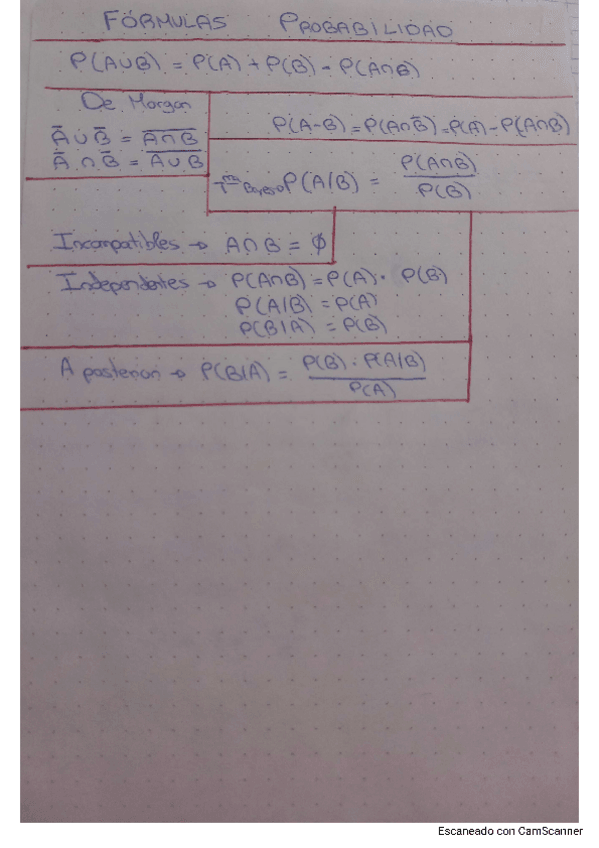 FÓRMULAS PROBABILIDAD
P(A∪B) = P(A) + P(B) - P(A∩B)
De Morgan
A̅ ∪ B̅ = \overline{A∩B}
A̅ ∩ B̅ = \overline{A∪B}
P(A-B) = P(A∩B̅) = P(A) - P(A∩B)
Tᵐᵃ Bayes P(A/B) = P(A∩B) / P(B)
Incompatibles → A∩B = ∅
Independientes → P(A∩B) = P(A) · P(B)
P(A/B) = P(A)
P(B/A) = P(B)
A posteriori → P(B/A) = P(B) · P(A/B) / P(A)
Escaneado con CamScanner